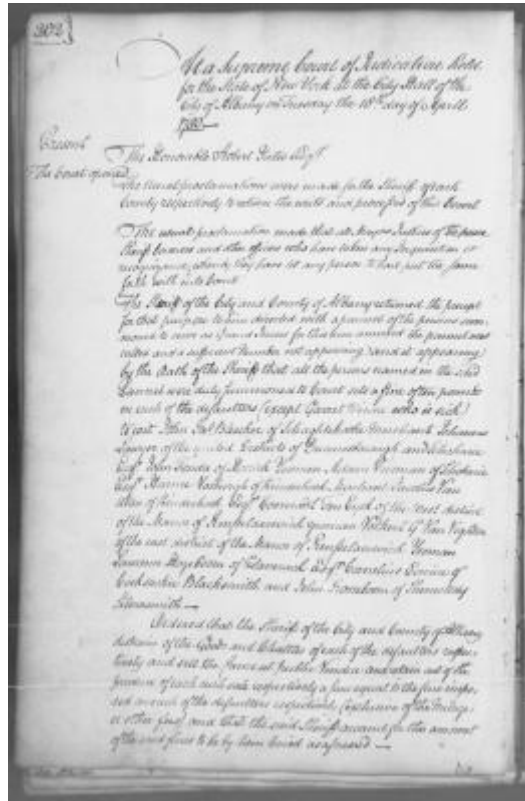 302
At a Supreme Court of Judicature held
for the State of New York at the City Hall of the
City of Albany on Tuesday the 18th day of April
1780
Present
The Honourable Robert Yates Esqr
The Court opened
The usual proclamations were made for the Sheriff of each
County respectively to return the writs and process of this Court
The usual proclamation made that all Mayors Justices of the peace
Sheriffs Coroners and other officers who have taken any Inquisition or
recognizance whereby they have let any person to bail put the same
forth with into Court
The Sheriff of the City and County of Albany returned the precept
for that purpose to him directed with a pannel of the persons sum
moned to serve as Grand Jurors for this Term annexed the pannel was
called and a sufficient number not appearing and it appearing
by the Oath of the Sheriff that all the persons named in the said
Pannel were duly summoned the Court sets a fine of ten pounds
on each of the defaulters (except Garret who is sick)
to wit John Bleecker of Merchant Johannes
Lawyer of the united Districts of Duanesburgh and Schoharie
Esqr John of Yeoman Adam Vrooman of Schoharie
Esqr of Kinderhook Merchant Van
Alen of Kinderhook Esqr of the West district
of the Manor of Rensselaerwick yeoman Volkert G Van Veghten
of the east district of the Manor of Rensselaerwick Yeoman
Hogeboom of Claverack Esqr Cornelius of
Coxsackie Blacksmith and John of Schenectady
Silversmith
Ordered that the Sheriff of the City and County of Albany
distrain of the Goods and Chattles of each of the defaulters respec
tively and sell the same at Public Vendue and retain out of the
produce of each such sale respectively a sum equal to the fine impo
sed on each of the defaulters respectively (exclusive of the
or other fees) and that the said Sheriff account for the amount
of the said fines to be by him levied as aforesaid